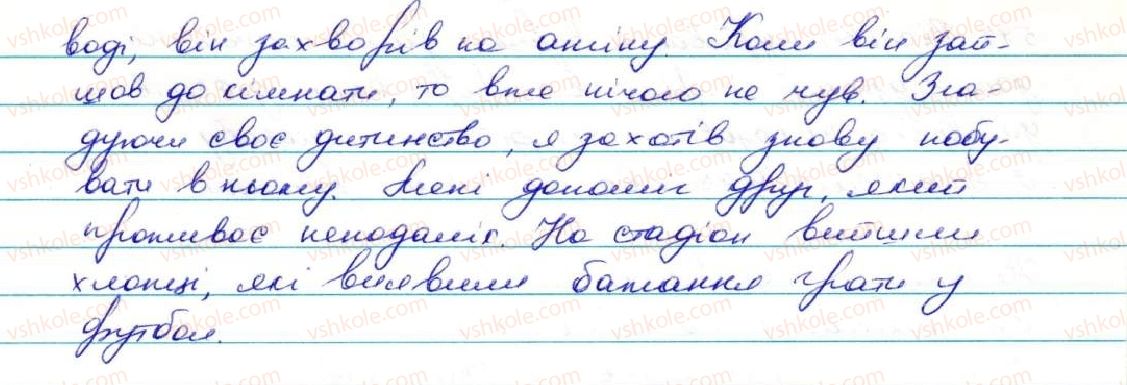 воді, він захворів на ангіну. Коли він зай-
шов до кімнати, то вже нічого не чув. Зга-
дуючи своє дитинство, я захотів знову побу-
вати в ньому. Мені допоміг друг, який
проживає неподалік. На стадіон вийшли
хлопці, які виявили бажання грати у
футбол.